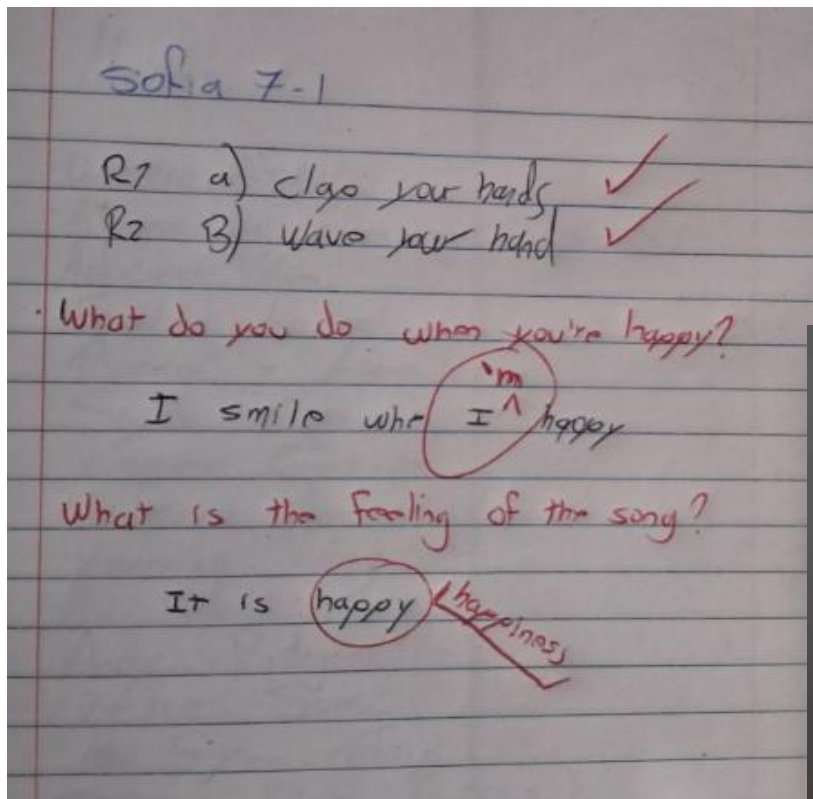 Sofia 7-1
R1 a) clap your hands
R2 B) wave your hand
What do you do when you're happy?
'm
I smile whe I ^ happy
What is the feeling of the song?
It is happy happiness